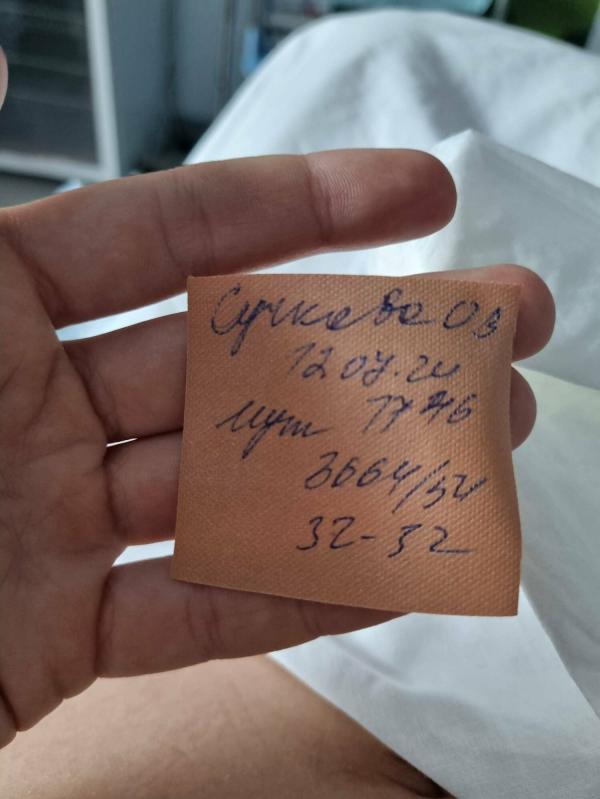 Сучкова ОВ
12.04.24
муж 7776
3664/54
32-32